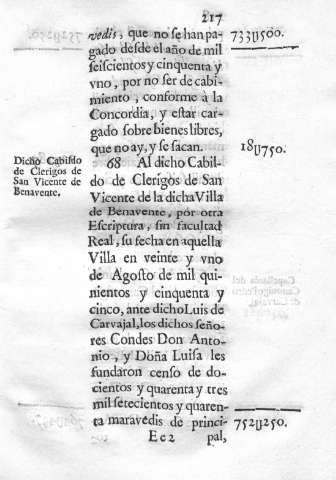 217
vedis, que no se han pa- 733ꝗ500.
gado desde el año de mil
seiscientos y cinquenta y
vno, por no ser de cabi-
miento, conforme à la
Concordia, y estar car-
gado sobre bienes libres,
que no ay, y se sacan. 18ꝗ750.
Dicho Cabildo
de Clerigos de
San Vicente de
Benavente.
68 Al dicho Cabil-
do de Clerigos de San
Vicente de la dicha Villa
de Benavente, por otra
Escriptura, sin facultad
Real, su fecha en aquella
Villa en veinte y vno
de Agosto de mil qui-
nientos y cinquenta y
cinco, ante dicho Luis de
Carvajal, los dichos seño-
res Condes Don Anto-
nio, y Doña Luisa les
fundaron censo de do-
cientos y quarenta y tres
mil setecientos y quaren-
ta maravedis de princi- 752ꝗ250.
Ee2 pal,